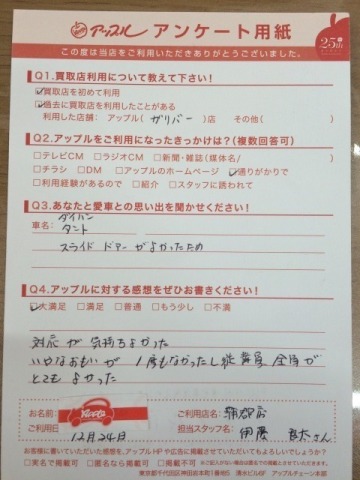 Apple アップル アンケート用紙
25th
この度は当店をご利用いただきありがとうございました。
Q1.買取店利用について教えて下さい!
□買取店を初めて利用
☑過去に買取店を利用したことがある
利用した店舗: アップル( ガリバー )店 その他( )
Q2.アップルをご利用になったきっかけは?(複数回答可)
□テレビCM □ラジオCM □新聞・雑誌(媒体名/ )
□チラシ □DM □アップルのホームページ ☑通りがかりで
□利用経験があるので □紹介 □スタッフに誘われて
Q3.あなたと愛車との思い出を聞かせください!
車名: ダイハツ
タント
スライド ドアーがよかったため
Q4.アップルに対する感想をぜひお書きください!
☑大満足 □満足 □普通 □もう少し □不満
対応が 気持ちよかった
いやなおもいが 1度もなかったし従業員 全員が
とても よかった
お名前:
Apple
ご利用店名: 蒲郡店
ご利用日 12月24日
担当スタッフ名: 伊藤 さん
お客様に書いていただいた感想を、アップルHPや広告に掲載させていただいてもよろしいでしょうか?
□実名で掲載可 □匿名なら掲載可 □掲載不可
東京都千代田区神田錦本町1番地6 清水ビル6F アップルチェーン本部